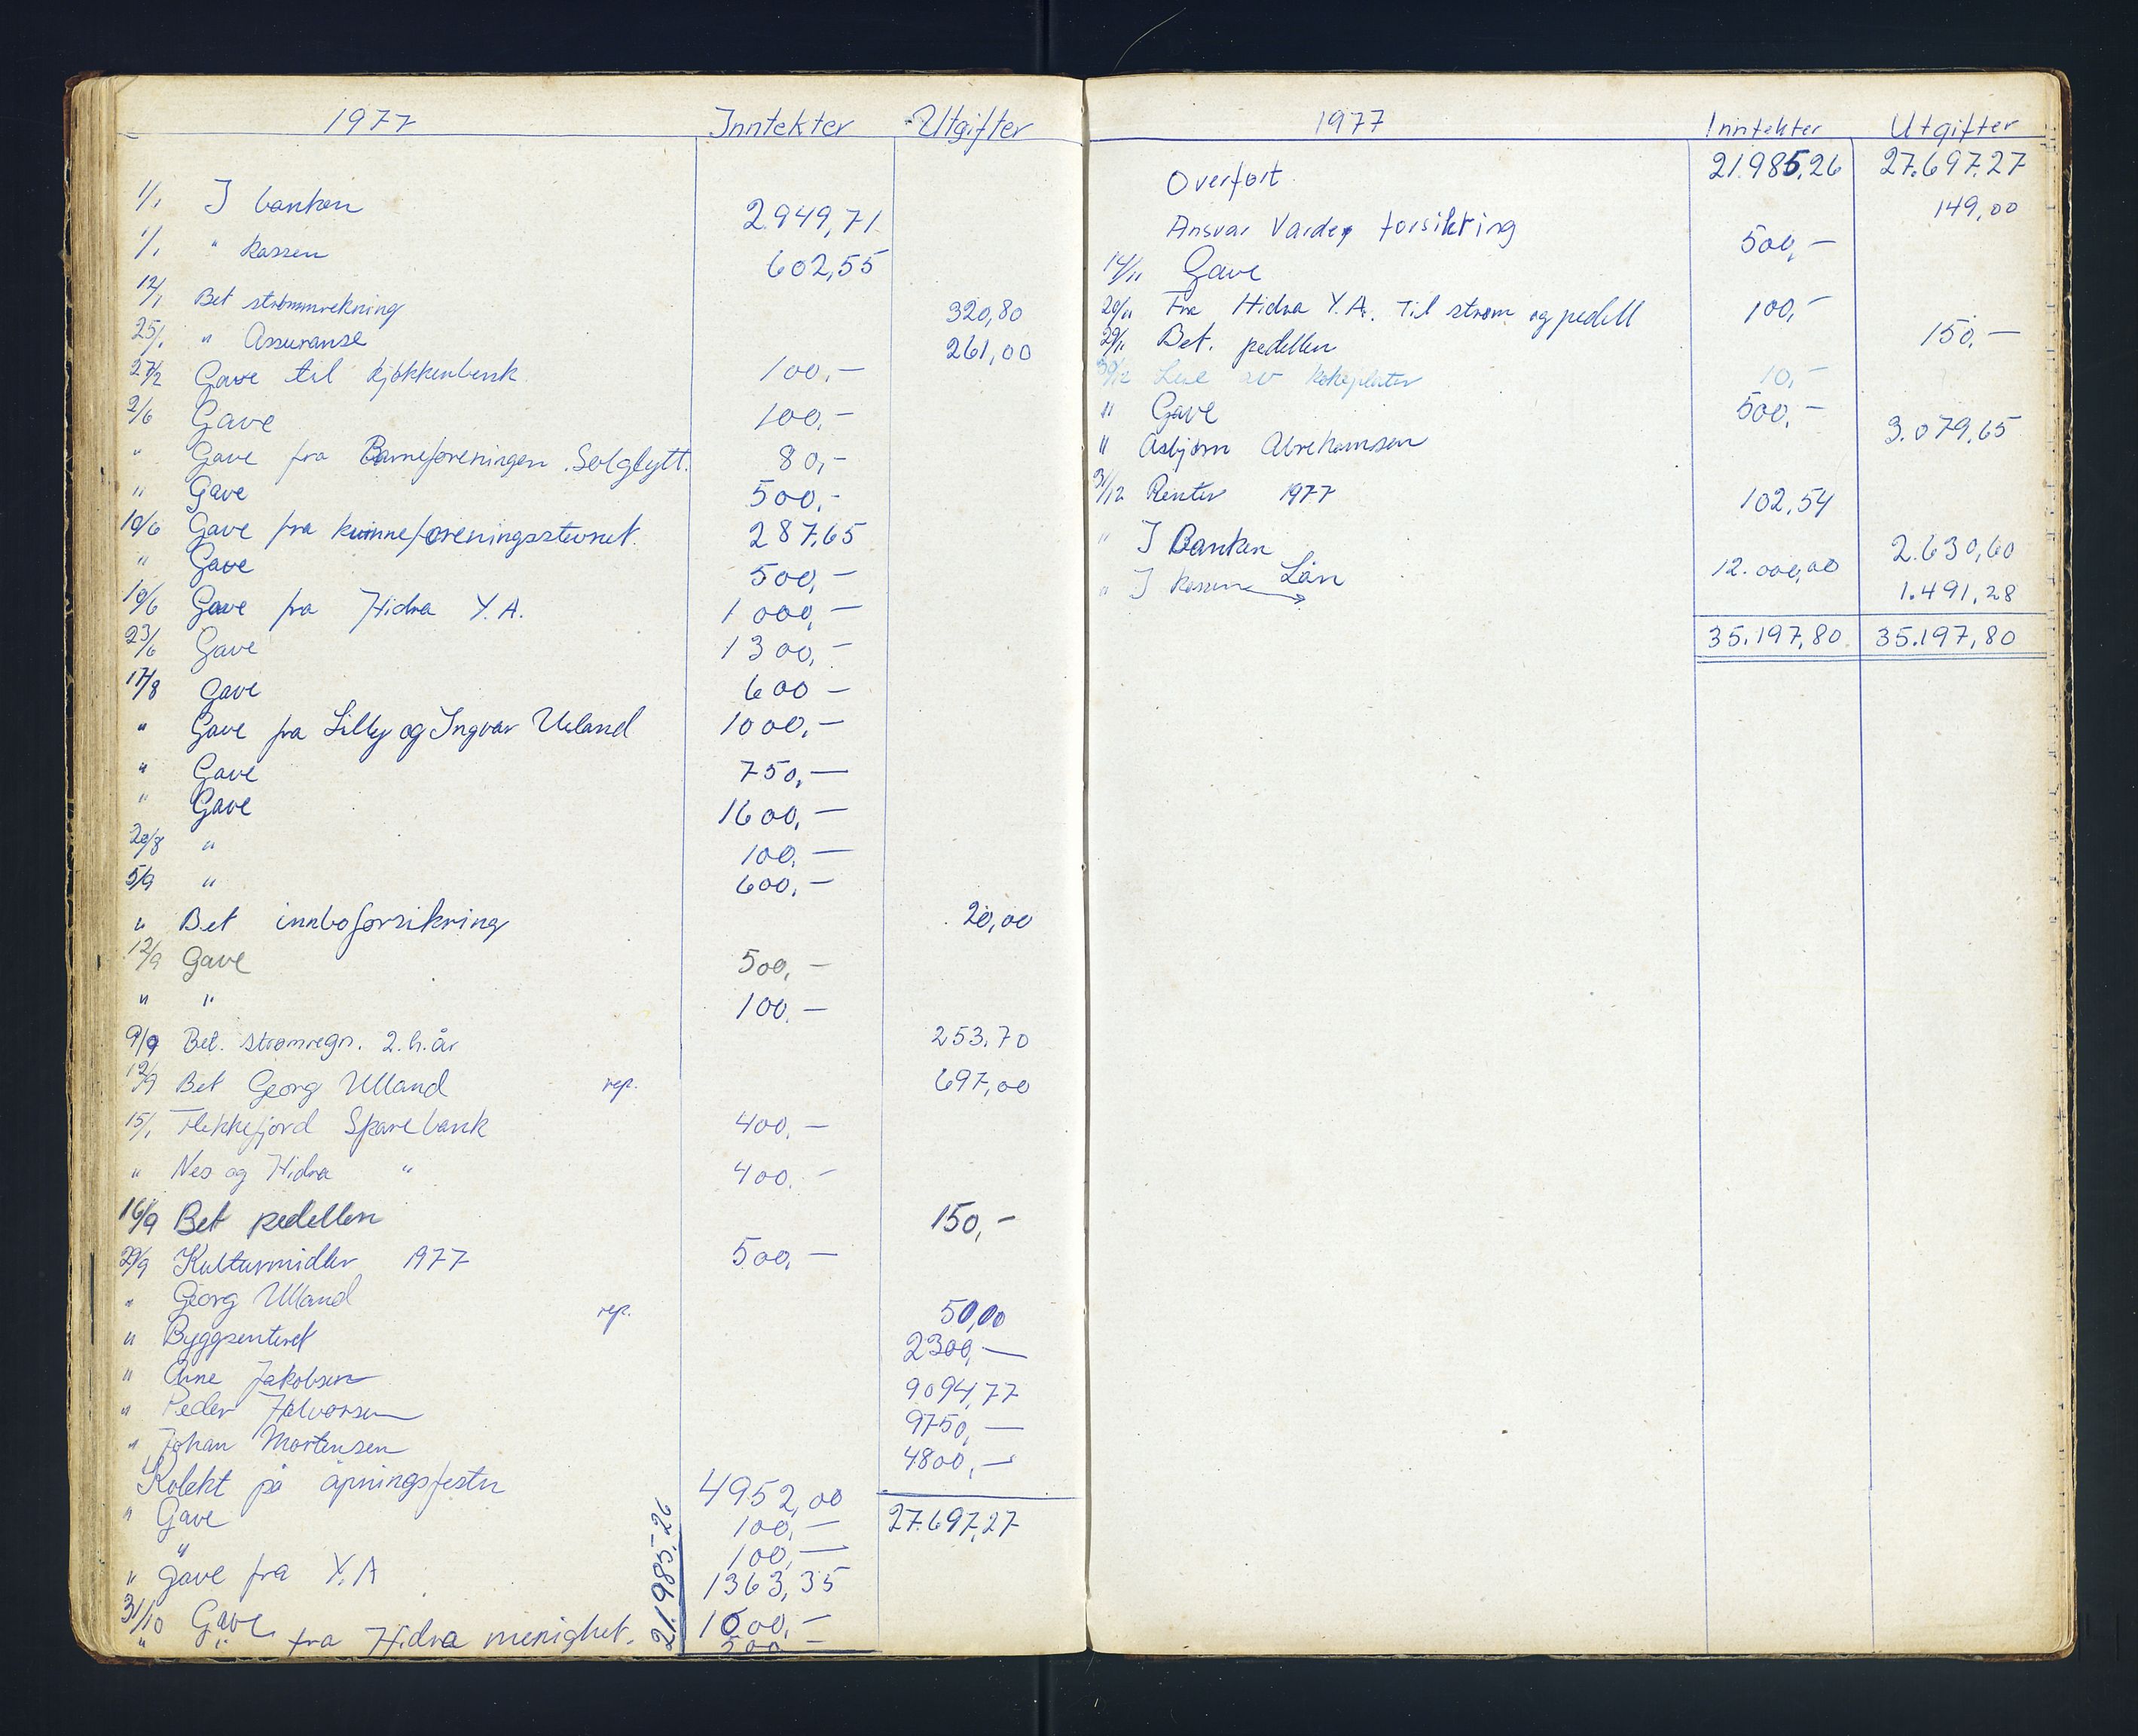 1977 Inntekter Utgifter
1/1 I banken 2.949,71
1/1 " kassen 602,55
12/1 Bet strømmrekning 320,80
25/1 " Assuranse 261,00
27/2 Gave til kjøkkenbenk 100,-
2/6 Gave 100,-
" Gave fra Barneforeningen Solglytt. 80,-
" Gave 500,-
10/6 Gave fra kvinneforeningsstevnet. 287,65
" Gave 500,-
10/6 Gave fra Hidra Y.A. 1000,-
23/6 Gave 1300,-
17/8 Gave 600 -
" Gave fra Lilly og Ingvar Ueland 1000,-
" Gave 750,-
" Gave 1600,-
20/8 " 100,-
5/9 " 600,-
" Bet innboforsikring 20,00
12/9 Gave 500,-
" " 100,-
9/9 Bet. strømregn. 2.h.år 253.70
12/9 Bet Georg Ulland rep. 697,00
15/1 Flekkefjord Sparebank 400,-
" Nes og Hidra " 400,-
16/9 Bet pedellen 150,-
29/9 Kulturmidler 1977 500,-
" Georg Ulland rep. 50,00
" Byggsenteret 2300,-
" Arne Jakobsen 9094,77
" Peder Halvorsen 9750,-
" Johan Mortensen 4800,-
Kolekt på åpningsfesten 4952,00
" Gave 100,- 27.697,27
" 100,-
" Gave fra Y.A 1363,35
31/10 Gave 1000,-
" " fra Hidra menighet. 500 -
21.985,26
1977 Inntekter Utgifter
Overført. 21.985,26 27.697,27
Ansvar Varde forsikring 149,00
14/11 Gave 500,-
20/11 Fra Hidra Y.A. Til strøm og pedell 100,-
29/11 Bet. pedellen 150,-
30/12 Leie av kokeplater 10,-
" Gave 500,-
" Asbjørn Abrahamsen 3.079,65
31/12 Renter 1977 102,54
" I Banken 2.630,60
Lån 12.000,00
" I kassen 1.491,28
35.197,80 35.197,80